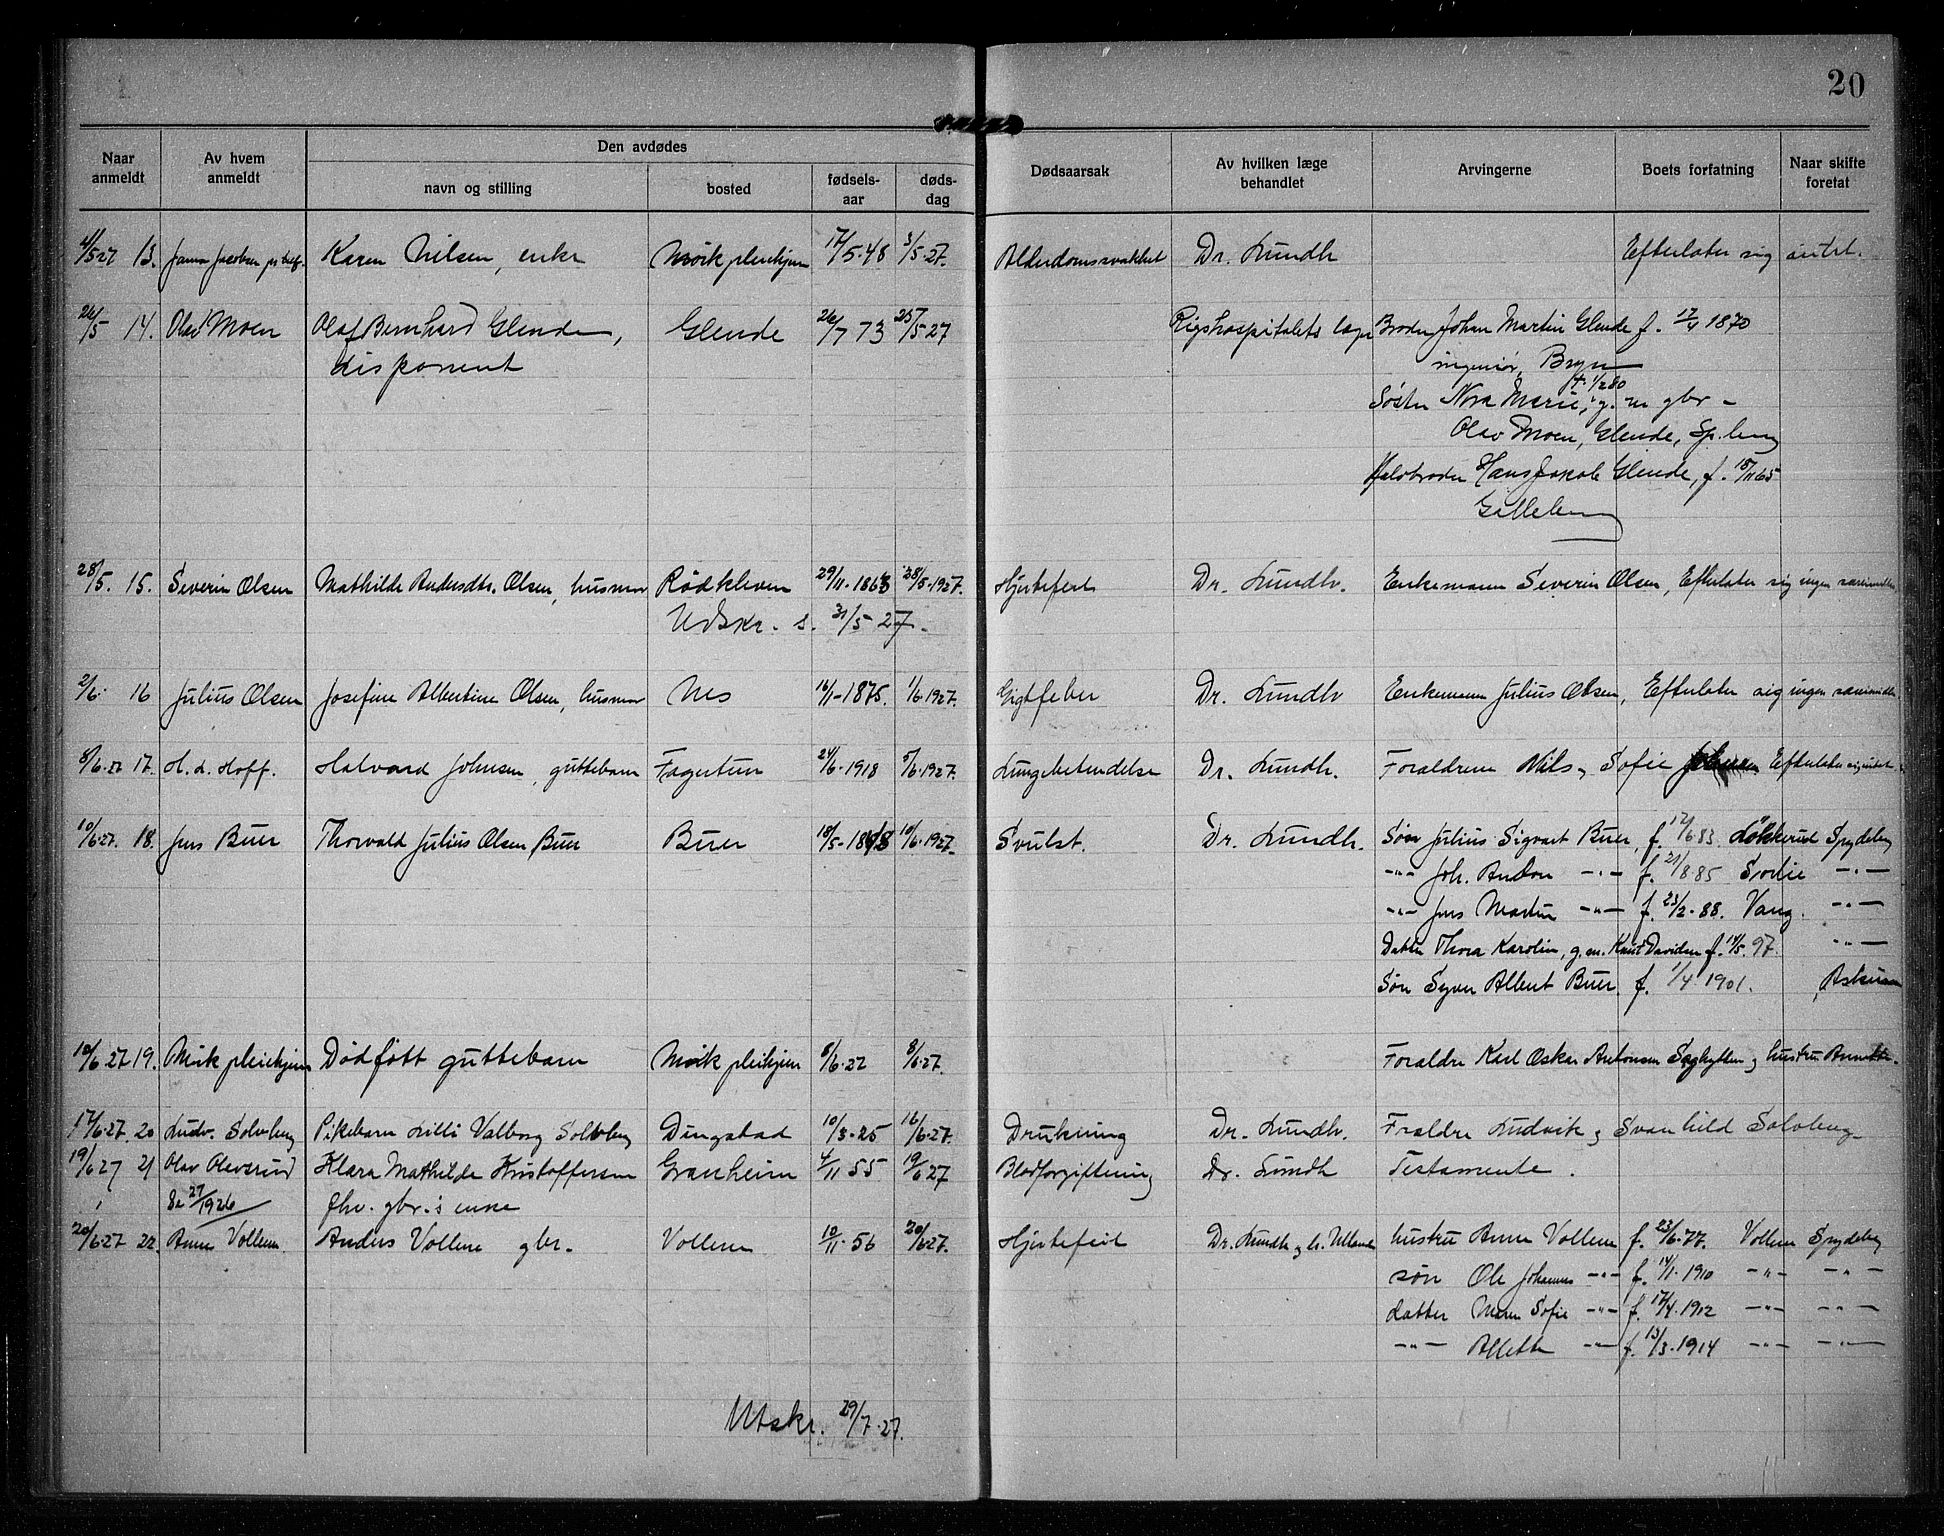 20
Den avdødes
Naar anmeldt | Av hvem anmeldt | navn og stilling | bosted | fødsels-aar | døds-dag | Dødsaarsak | Av hvilken læge behandlet | Arvingerne | Boets forfatning | Naar skifte foretat
4/5 27 13. Jacobsen Karen Nilsen, enke Mörk pleiehjem 17/5-48 3/5-27. Alderdomssvakhet Dr. Lundh Efterlater sig intet.
26/5 14. Olav Moen Olaf Bernhard Glende, Glende 26/7 73 25/5-27 Rigshospitalets læger Broder Johan Martin Glende f. 17/4 1870
disponent ingeniør, Bryn
f. 1/2 80
Søster Nora Marie, g. m gbr -
Olav Moen, Glende, Sp.berg
Halvbroder Hans Jakob Glende, f. 15/11 65
Galleberg
28/5. 15. Severin Olsen Mathilde Andersdtr. Olsen, husmor Rödkleven 29/11-1863 28/5-1927. Hjertefeil Dr. Lundh. Enkemann Severin Olsen, Efterlater sig ingen særmidler
Udskr. s. 31/5-27.
2/6. 16 Julius Olsen Josefine Albertine Olsen, husmor Nes 16/1-1875. 1/6 1927. Gigtfeber Dr. Lundh Enkemann Julius Olsen, Efterlater sig ingen særmidler
8/6-27 17. H. L. Hoff. Halvard Johnsen, guttebarn Fagertun 24/6-1918 5/6-1927. Lungebetendelse Dr. Lundh. Foraldrene Nils og Sofie Efterlater sig intet
10/6-27. 18. Jens Buer Thorvald Julius Olsen Buer Buer 18/5- 10/6-1927. Svulst. Dr. Lundh. Søn Julius Sigvart Buer, f. 12/6 83. Løkkerud Spydeberg
-"- Joh. Anton -"- f. 21/8-85 -"-
-"- Jens Martin -"- f. 23/2-88. Vang. -"-
Datter Thora Karolin, g. m. Knut Davidsen f. 14/5 97. -"-
Søn Syver Albert Buer. f. 1/4 1901. Askim
10/6-27 19. Mörk pleiehjem Dødfött guttebarn Mörk pleiehjem 8/6-27 8/6-27. Foraldre Karl Oskar Antonsen Saghytten og hustru Annette.
17/6-27. 20 Ludv. Solberg Pikebarn Lilli Valborg Solberg Dingstad 10/3-25 16/6-27. Drukning Dr. Lundh. Foraldre Ludvik og Svanhild Solberg
19/6 27 21 Olav Oleverud Klara Mathilde Kristoffersen Granheim 4/11 55 19/6 27 Blodforgiftning Dr. Lundh Testamente.
Se 27/1926 fhv. gbr.s enke
20/6-27 22. Anne Vollene. Anders Vollene gbr. Vollene 10/11-56 20/6-27. Hjertefeil Dr. Lundh og dr. Ulland hustru Anne Vollene f. 23/6-77. Vollene Spydeberg
søn Ole Johannes -"- f. 14/1-1910 -"- -"-
datter Maren Sofie -"- f. 17/4-1912 -"- -"-
-"- Alette -"- f. 13/3-1914 -"- -"-
Utskr. 29/7-27.